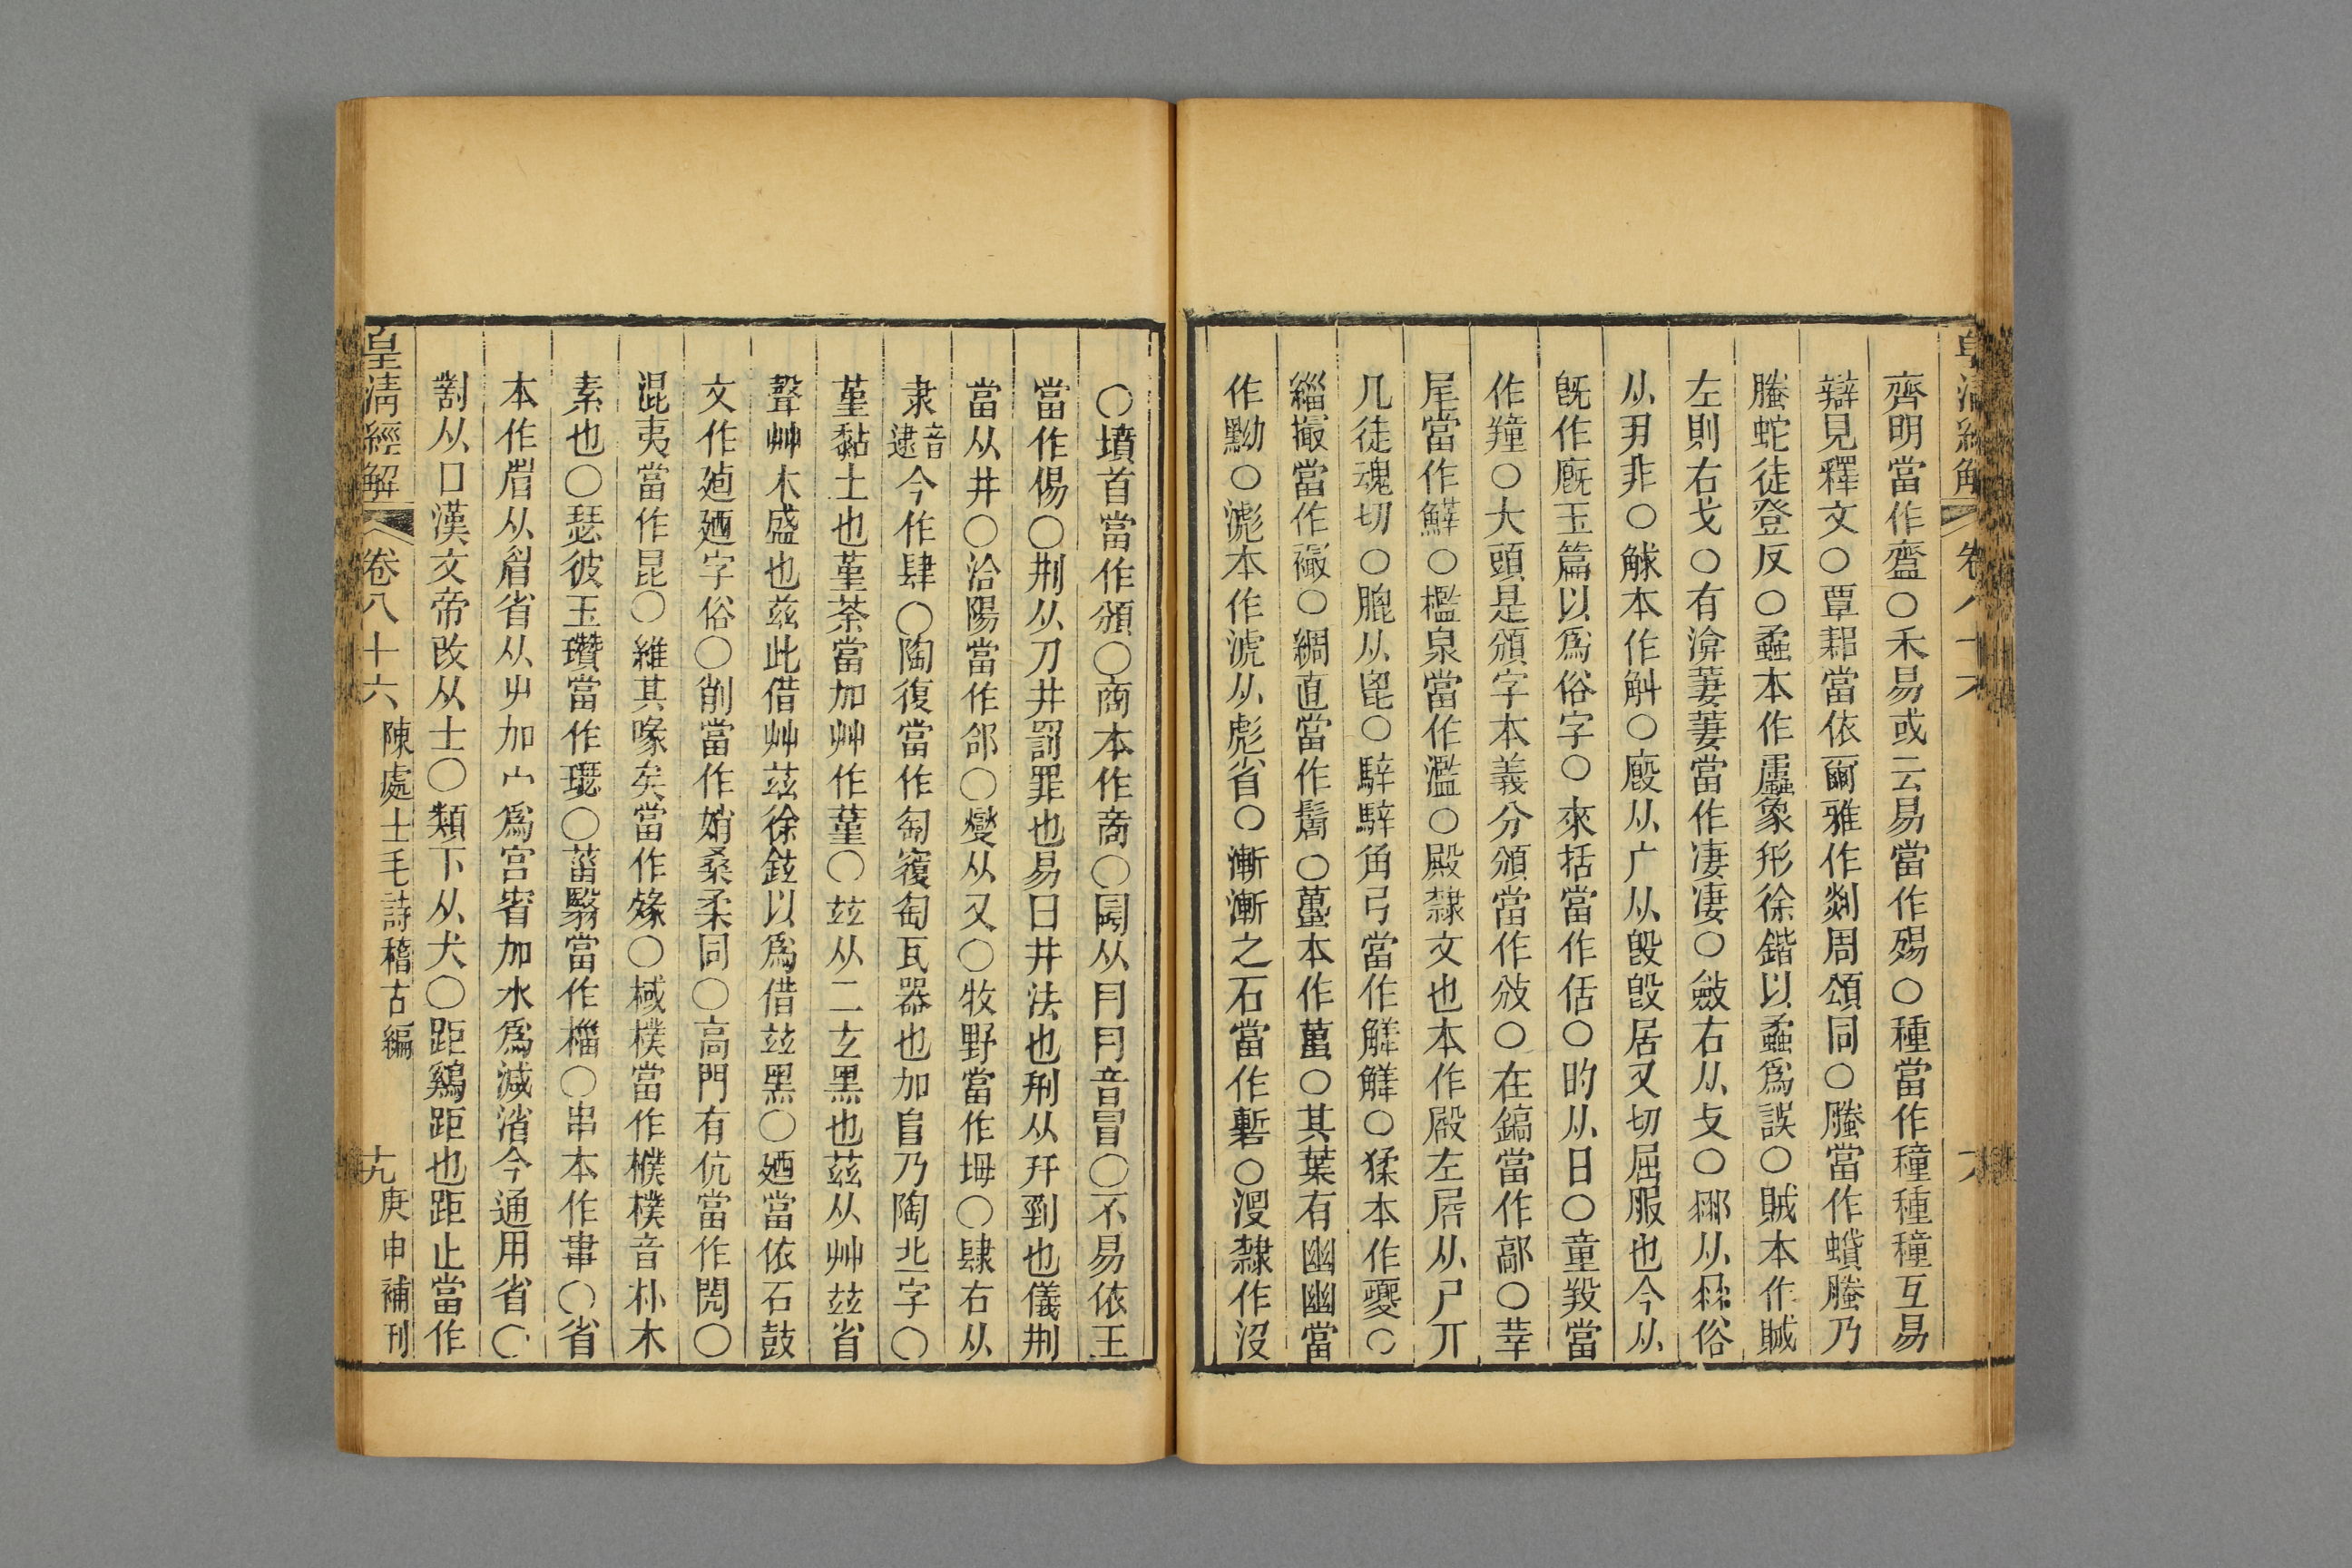 齊明當作齍○禾易或云易當作㻛○種當作穜種穜互易
辯見釋文○覃耜當依爾雅作剡周頌同○螣當作蟘螣乃
螣蛇徒登反○蟊本作𧖟象形徐鍇以蟊爲誤○賊本作𧵪
左則右戈○有渰萋萋當作淒淒○斂右从攴○邪从㸚俗
从丑非○觩本作斛○廄从广从㲃㲃居又切屈服也今从
旣作廐玉篇以爲俗字○來括當作佸○旳从日○童羖當
作羵○大頭是頒字本義分頒當作攽○在鎬當作鄗○莘
尾當作觲○檻泉當作濫○殿隸文也本作𡱂左居从尸丌
几徒魂切○膍从毘○騂騂角弓當作觲觲○猱本作夒○
緇撮當作襊○綢直當作鬜○蠆本作萬○其葉有幽幽當
作黝○滮本作淲从彪省○漸漸之石當作蹔○浸隸作沒
皇清經解
卷八十六
○墳首當作頒○商本作啇○闅从冃冃音冒○不易依王
當作傷○荆从刀井罰罪也易曰井法也刑从幵剄也儀荆
當从井○洽陽當作郃○燮从又○牧野當作坶○肆右从
隶音逮今作肆○陶復當作匋𥨍匋瓦器也加𨸏乃陶丘字○
堇黏土也堇荼當加艸作菫○玆从二玄黑也茲从艸玆省
聲艸木盛也茲此借艸茲徐鉉以爲借玆黑○廼當依石鼓
文作𢌨廼字俗○削當作㛾桑柔同○高門有伉當作閌○
混夷當作昆○維其喙矣當作㱱○棫樸當作樕樸音朴木
素也○瑟彼玉瓚當作璱○菑翳當作椔○串本作𠁶○省
本作㗂从眉省从屮加宀爲宫㝖加水爲減渻今通用省○
割从口漢文帝改从士○類下从犬○距鷄距也距止當作
皇清經解
卷八十六
陳處士毛詩稽古編
十九
庚申補刊